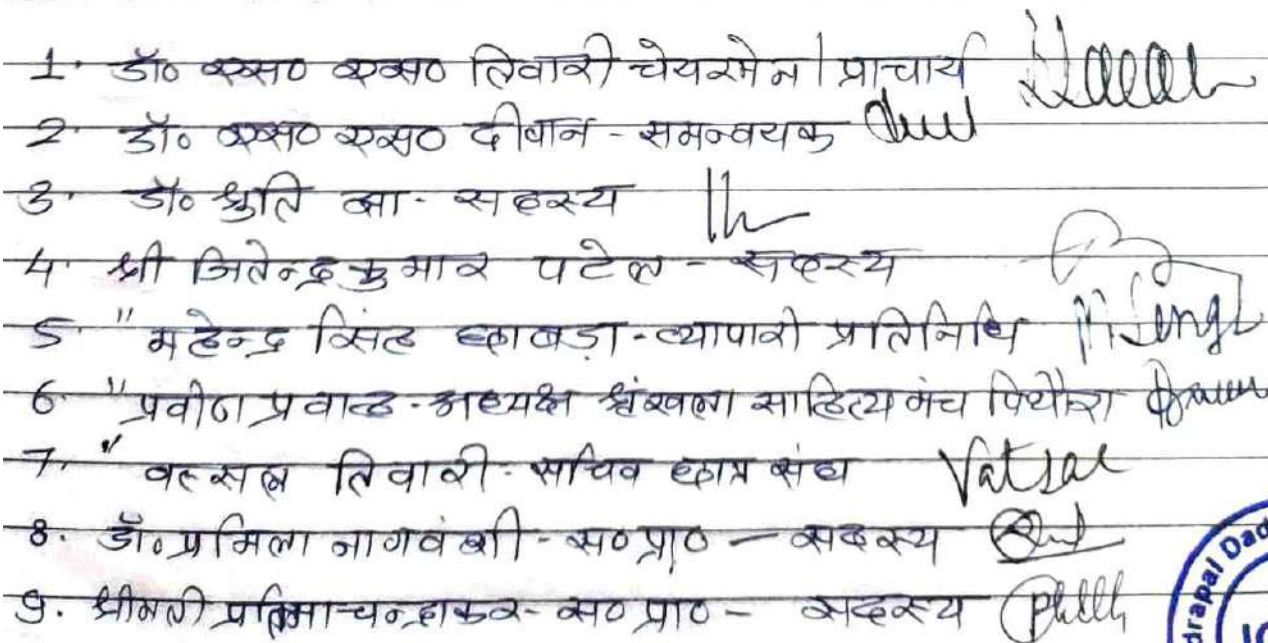 1. डॉ० एस० एस० तिवारी चेयरमेन | प्राचार्य
2. डॉ० एस० एस० दीवान - समन्वयक
3. डॉ० श्रुति झा - सदस्य
4. श्री जितेन्द्र कुमार पटेल - सदस्य
5. " महेन्द्र सिंह छाबड़ा - व्यापारी प्रतिनिधि
6. " प्रवीण प्रवाह - अध्यक्ष श्रृंखला साहित्य मंच पिथौरा
7. " वत्सल तिवारी - सचिव छात्र संघ Vatsal
8. डॉ. प्रमिला नागवंशी - स० प्रा० — सदस्य
9. श्रीमती प्रतिमा चन्द्राकर - स० प्रा० - सदस्य